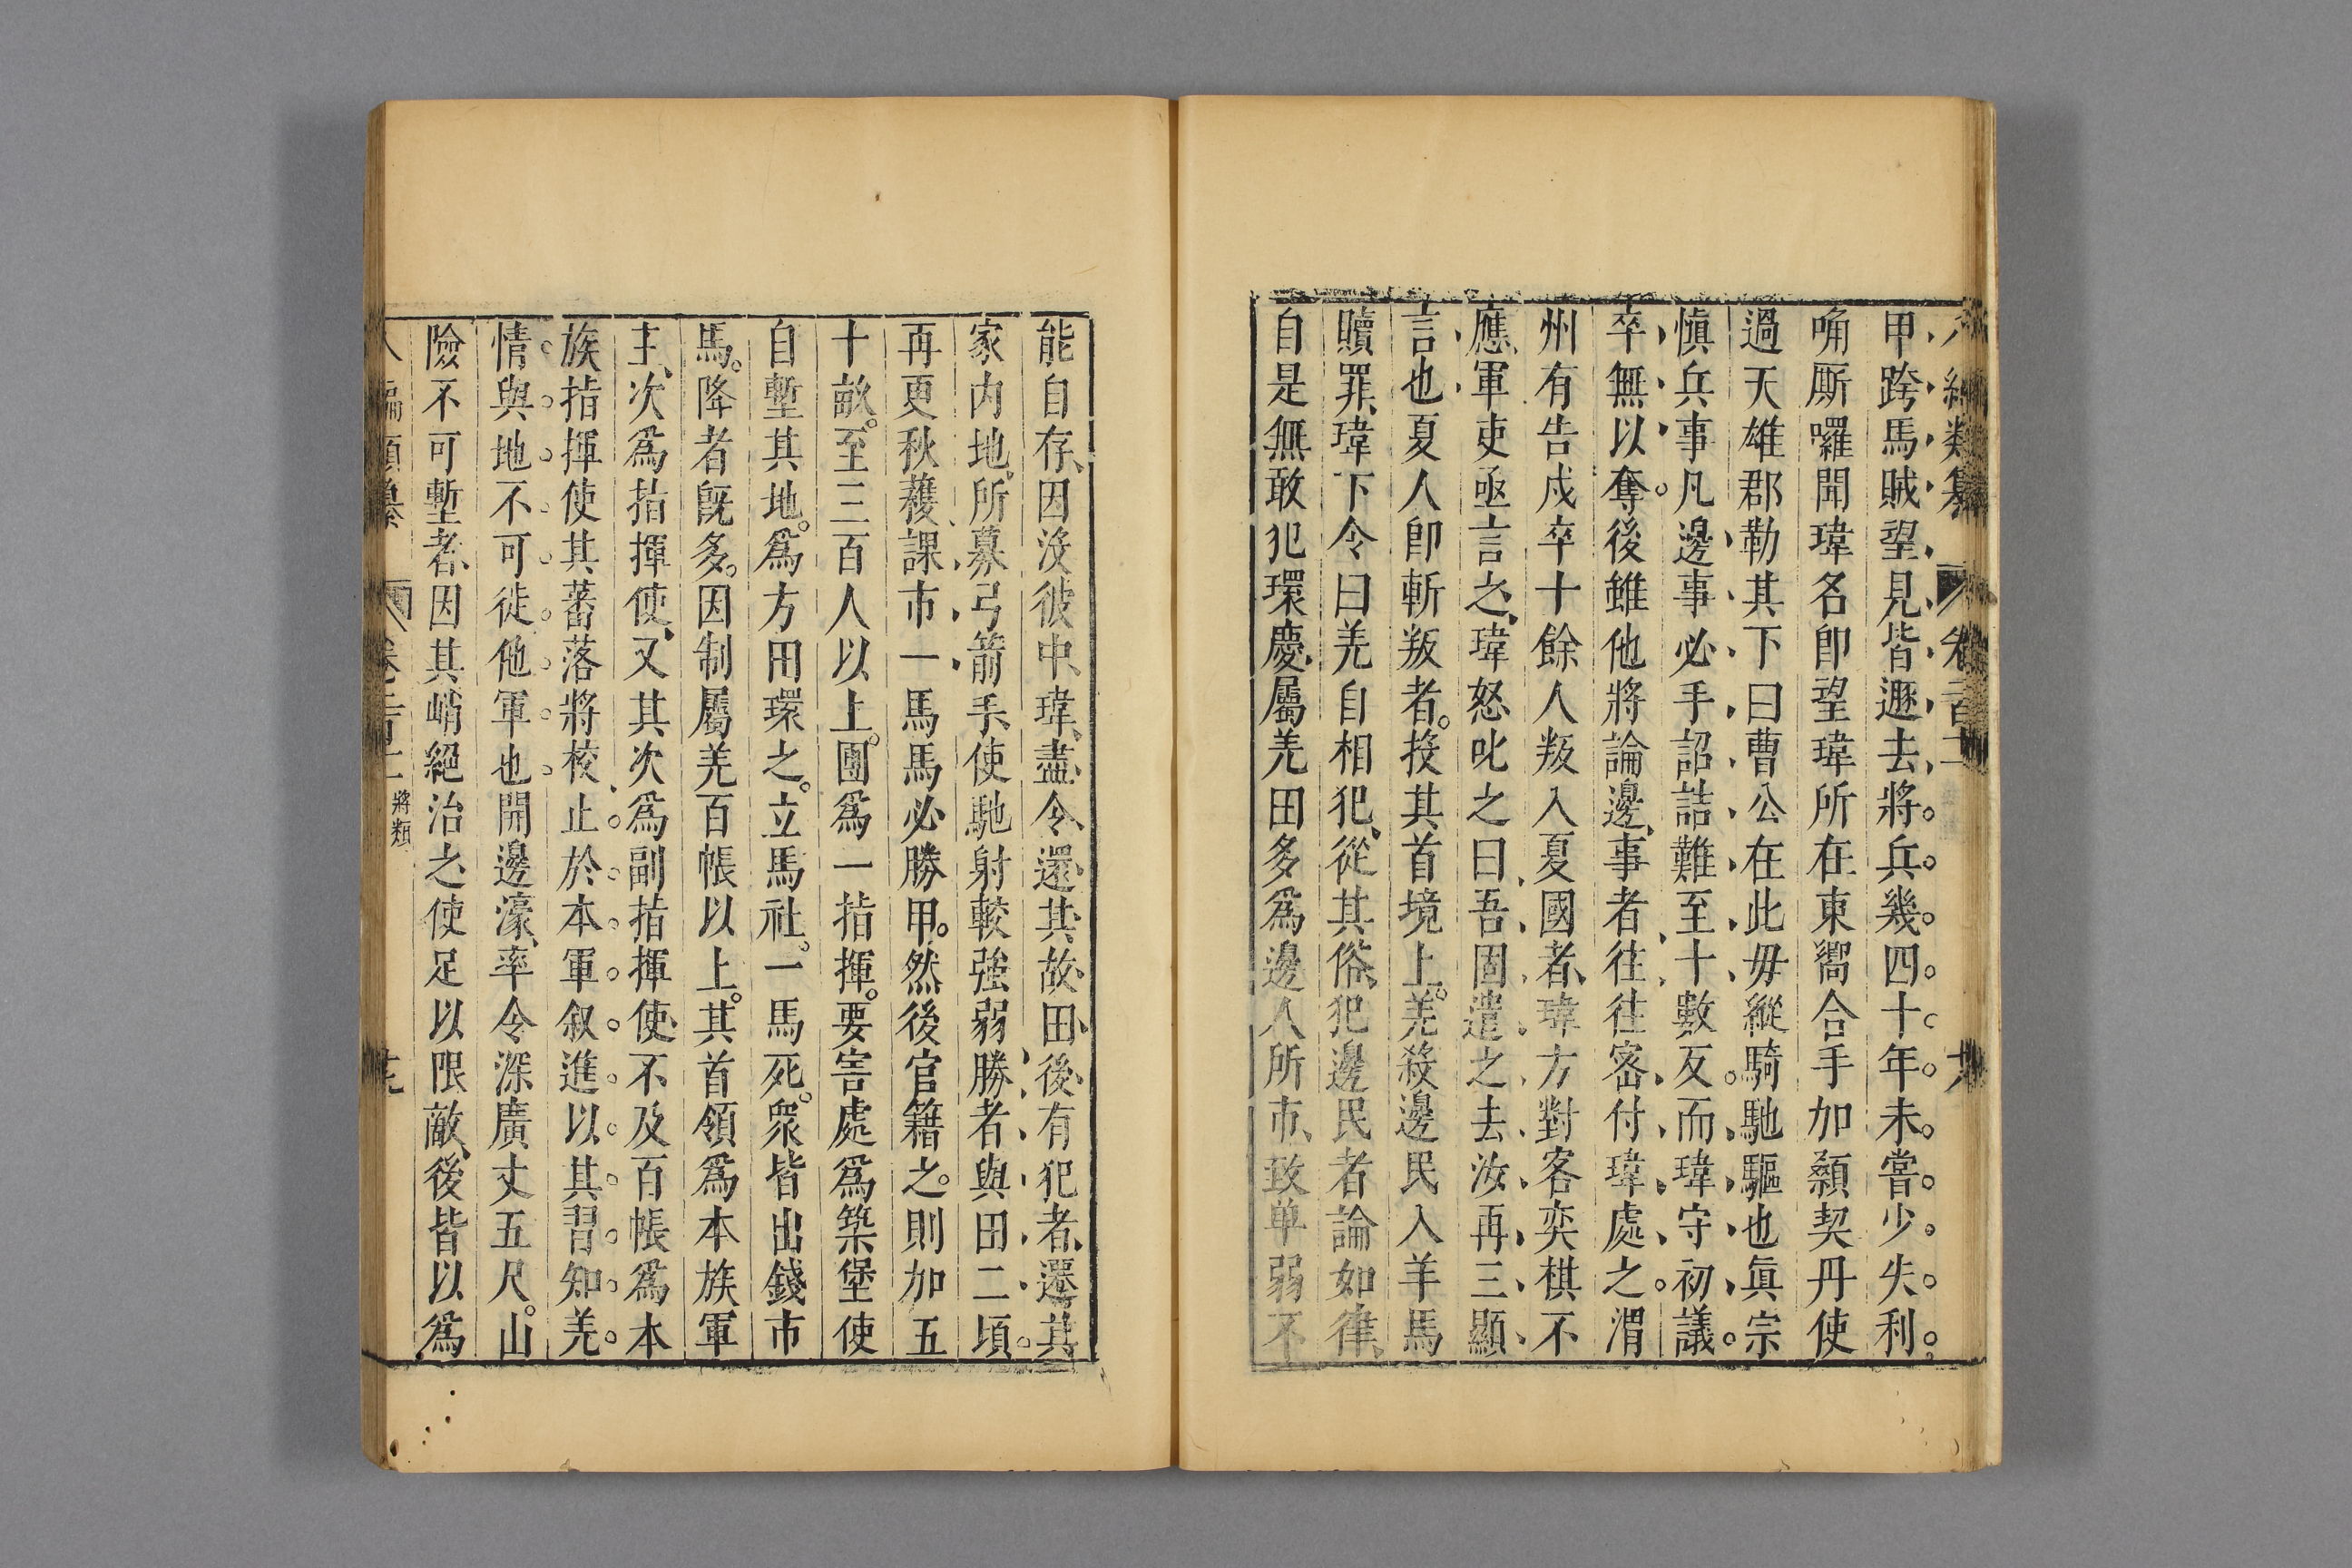 甲跨馬賊望見皆遯去將兵幾四十年未嘗少失利
唃厮囉聞瑋名卽望瑋所在東嚮合手加顙契丹使
過天雄郡勒其下曰曹公在此毋縱騎馳驅也眞宗
愼兵事凡邊事必手詔詰難至十數反而瑋守初議
卒無以奪後雖他將論邊事者往往密付瑋處之渭
州有告戍卒十餘人叛入夏國者瑋方對客奕棋不
應軍吏亟言之瑋怒叱之曰吾固遣之去汝再三顯
言也夏人卽斬叛者投其首境上羌殺邊民入羊馬
贖罪瑋下令曰羌自相犯從其俗犯邊民者論如律
自是無敢犯環慶屬羌田多爲邊人所市致單弱不
能自存因沒彼中瑋盡令還其故田後有犯者遷其
家内地所募弓箭手使馳射較強弱勝者與田二頃
再更秋穫課市一馬馬必勝甲然後官籍之則加五
十畝至三百人以上團爲一指揮要害處爲築堡使
自塹其地爲方田環之立馬社一馬死衆皆出錢市
馬降者旣多因制屬羌百帳以上其首領爲本族軍
主次爲指揮使又其次爲副指揮使不及百帳爲本
族指揮使其蕃落將校止於本軍叙進以其習知羌
情與地不可徙他軍也開邊濠率令深廣丈五尺山
險不可塹者因其峭絕治之使足以限敵後皆以爲
將類